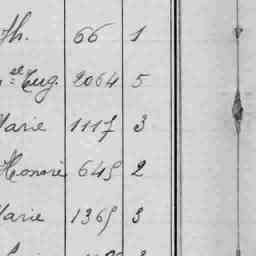 th. 66 1
se Eug. 2064 5
Marie 1117 3
Honoré 645 2
Marie 1365 3